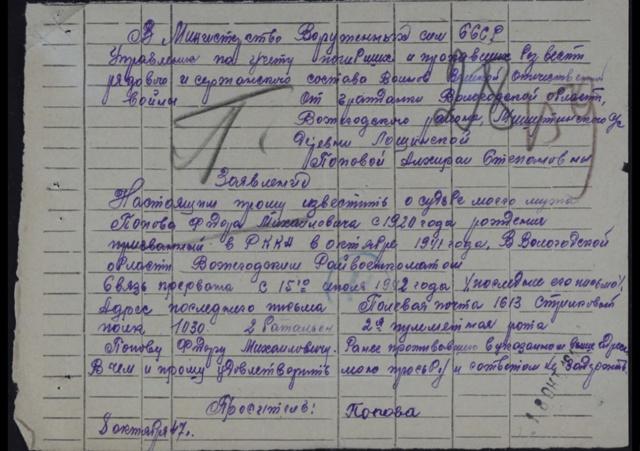 В Министерство Вооруженных сил ССCР
Управления по учету погибших и пропавших без вести
рядового и сержанского состава воинов Великой Отечествен
войны От гражданки Вологодской области,
Вожегодского района, Мишутинского с/с
Деревни Лощинской
Поповой Степановны
Заявление
Настоящим прошу известить о судьбе моего мужа
Попова Фёдора Михайловича с 1920 года рождения
призванный в РККА в октябре 1941 года, В Вологодской
области Вожегодским Райвоенкоматом
Связь прервана с 15го июля 1942 года (последнее его письмо)
Адрес последнего письма Полевая почта 1613 Стрелковый
полк 1030. 2 Баталион 2я пулеметная рота
Попову Фёдору Михайловичу. Ранее проживавшего в указанном выше адресе
В чем и прошу удовлетворить мою просьбу и с ответом не задержать
Проситель: Попова
8 октября 47г.